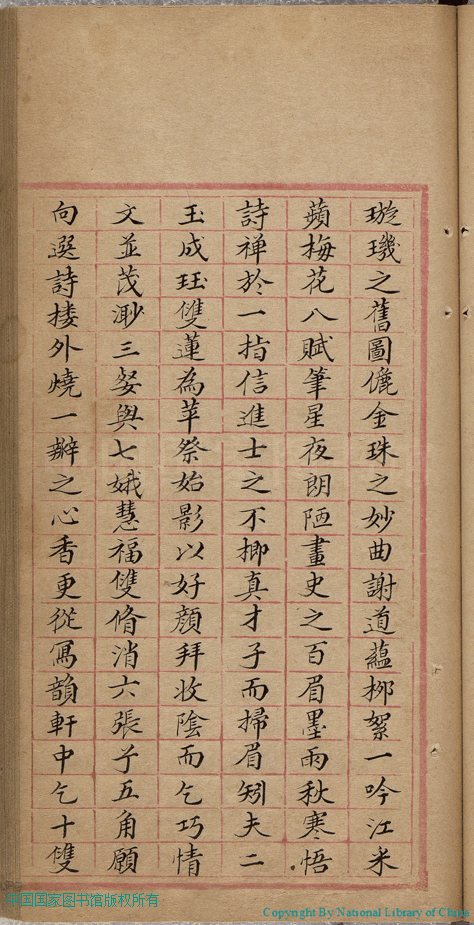 璇璣之舊圖儷金珠之妙曲謝道蘊桺絮一吟江米
蘋梅花八賦筆星夜朗陋畫史之百眉墨雨秋寒悟
詩禅於一指信進士之不擳真才子而掃眉矧夫二
玉成珏雙蓮為苹祭始影以好顔拜妝陰而乞巧情
文並茂渺三姿與七娥慧福雙脩消六張于五角願
向選詩捿外燒一瓣之心香更從冩韻軒中乞十雙
中国国家图书馆版权所有
Copyright By National Library of China